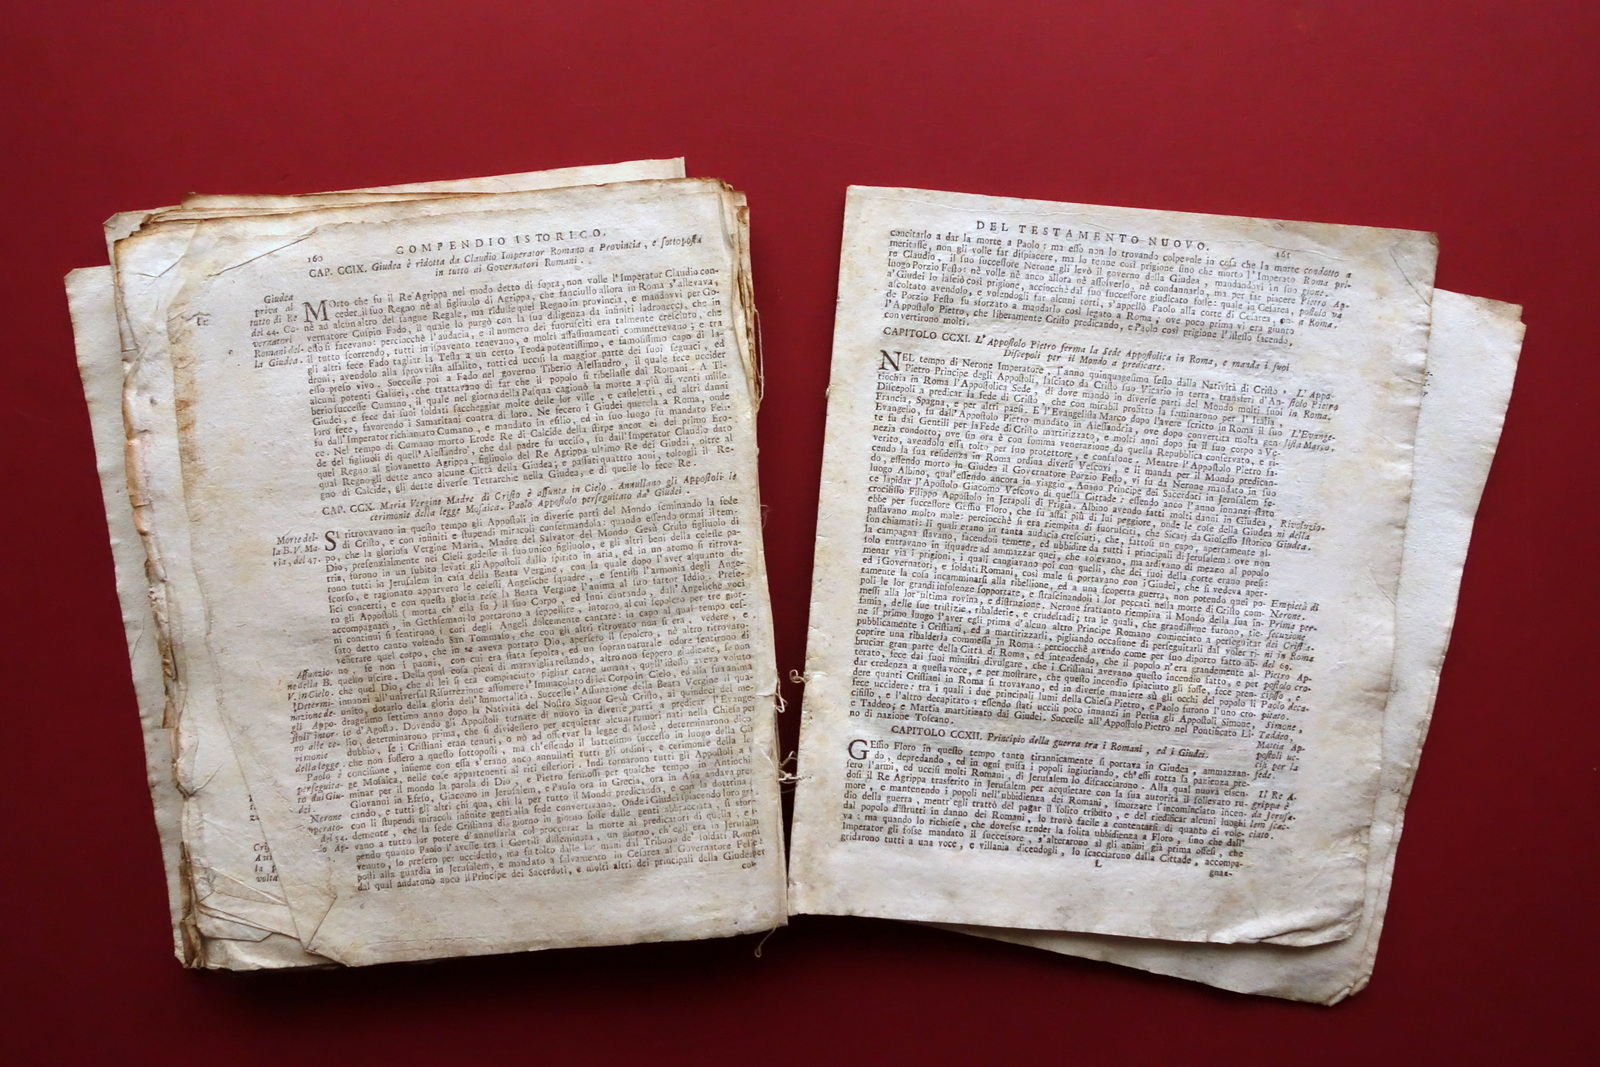 COMPENDIO ISTORICO.
160
CAP. CCIX. Giudea è ridotta da Claudio Imperator Romano a Provincia, e sottoposta
in tutto ai Governatori Romani.
Giudea
prima al
tutto di Re
del 44. Go-
vernatori
Romani del-
la Giudea.
MOrto che fu il Re Agrippa nel modo detto di sopra, non volle l'Imperator Claudio con-
ceder il suo Regno nè al figliuolo di Agrippa, che fanciullo allora in Roma s'allevava,
nè ad alcun altro del sangue Regale, ma ridusse quel Regno in provincia, e mandavvi per Go-
vernatore Cuspio Fado, il quale lo purgò con la sua diligenza da infiniti ladronecci, che in
esso si facevano: perciocchè l'audacia, e il numero de' fuorusciti era talmente cresciuto, che
il tutto scorrendo, tutti in ispavento tenevano, e molti assassinamenti commettevano; e tra
gli altri fece Fado tagliar la Testa a un certo Teoda potentissimo, e famosissimo capo di la-
droni, avendolo alla sprovista assalito, rotti ed uccisi la maggior parte de' suoi seguaci, ed
esso preso vivo. Successe poi a Fado nel governo Tiberio Alessandro, il quale fece uccider
alcuni potenti Galilei, che trattarono di far che il popolo si ribellasse dai Romani. A Ti-
berio successe Cumano, il quale nel giorno della Pasqua cagionò la morte a più di venti mille
Giudei, e fece dai suoi soldati saccheggiar molte delle lor ville, e castelletti, ed altri danni
loro fece, favorendo i Samaritani contra di loro. Ne fecero i Giudei querela a Roma, onde
fu dall'Imperator richiamato Cumano, e mandato in esilio, ed in suo luogo fu mandato Feli-
ce. Nel tempo di Cumano morto Erode Re di Calcide della stirpe ancor ei del primo Ero-
de del figliuoli di quell'Alessandro, che dal padre fu ucciso, fu dall'Imperator Claudio dato
quel Regno al giovanetto Agrippa, figliuolo del Re Agrippa ultimo Re dei Giudei, oltre al
qual Regno gli dette anco alcune Città della Giudea; e passati quattro anni, toltogli il Re-
gno di Calcide, gli dette diverse Tetrarchie nella Giudea, e di quelle lo fece Re.
CAP. CCX. Maria Vergine Madre di Cristo è assunta in Cielo. Annullano gli Appostoli le
cerimonie della legge Mosaica. Paolo Appostolo perseguitato da' Giudei.
Morte del-
la B. V. Ma-
ria, del 47.
SI ritrovavano in questo tempo gli Appostoli in diverse parti del Mondo seminando la fede
di Cristo, e con infiniti e stupendi miracoli confermandola: quando essendo ormai il tem-
po, che la gloriosa Vergine Maria, Madre del Salvator del Mondo Gesù Cristo figliuolo di
Dio, presenzialmente nei Cieli godesse il suo unico figliuolo, e gli altri beni della celeste pa-
tria, furono in un subito levati gli Appostoli dallo spirito in aria, ed in un atomo si ritrova-
rono tutti in Jerusalem in casa della Beata Vergine, con la quale dopo l'aver alquanto di-
scorso, e ragionato apparvero le celesti Angeliche squadre, e sentissi l'armonia degli Ange-
lici concerti, e con questa gloria rese la Beata Vergine l'anima al suo fattor Iddio. Prese-
ro gli Appostoli (morta ch' ella fu) il suo Corpo, ed Inni cantando, dall'Angeliche voci
accompagnati, in Gethsemani lo portarono a seppellire, intorno al cui sepolcro per tre gior-
ni continui si sentirono i cori degli Angeli dolcemente cantare; in capo al qual tempo ces-
sato detto canto volendo San Tommaso, che con gli altri ritrovato non si era, vedere, e
venerare quel corpo, che in se aveva portato Dio, apersero il sepolcro, nè altro ritrovaro-
no, se non i panni, con cui era stata sepolta, ed un sopranaturale odore sentirono di
quello uscire. Della qual cosa pieni di maraviglia restando, altro non seppero giudicare, se non
che quel Dio, che di lei si era compiaciuto pigliar carne umana, quell'istesso aveva voluto
innanzi all'universal Risurrezione assumere l'Immacolato di lei Corpo in Cielo, ed alla sua anima
unito, dotarlo della gloria dell'Immortalità. Successe l'Assunzione della Beata Vergine il qua-
dragesimo settimo anno dopo la Natività del Nostro Signor Gesù Cristo, ai quindeci del me-
se d'Agosto. Dovendo gli Appostoli tornare di nuovo in diverse parti a predicar l'Evange-
lio, determinarono prima, che si dividessero per acquietar alcuni rumori nati nella Chiesa per
dubbio, se i Cristiani eran tenuti, o no ad osservar la legge di Mosè, determinarono dico
che non fossero a questo sottoposti, ma ch'essendo il battesimo successo in luogo della Cir-
concisione, insieme con essa s'erano anco annullati tutti gli ordini, e cerimonie della leg-
ge Mosaica, nelle cose appartenenti ai riti esteriori. Indi tornarono tutti gli Appostoli a se-
minar per il mondo la parola di Dio, e Pietro fermossi per qualche tempo in Antiochia,
Giovanni in Efeso, Giacomo in Jerusalem, e Paolo ora in Grecia, ora in Asia andava predi-
cando, e tutti gli altri chi quà, chi là per tutto il Mondo predicando, e con la dottrina,
con li stupendi miracoli infinite genti alla fede convertirono. Onde i Giudei
demente, che la fede Cristiana di giorno in giorno fosse dalle genti abbracciata, si sfor-
vano a tutto lor potere d'annullarla col procurar la morte ai predicatori di quella; e
pendo quanto Paolo l'avesse tra i Gentili disseminata, un giorno, ch'egli era in Jerusalem
venuto, lo presero per ucciderlo, ma fu tolto dalle lor mani dal Tribuno de' soldati Romani
posti alla guardia in Jerusalem, e mandato a salvamento in Cesarea al Governatore Felice,
dal qual andatono anco il Principe dei Sacerdoti, e molti altri dei principali della Giudea
co-
Assunzio-
ne della B.
V. in Cielo.
Determi-
nazione de-
gli Appo-
stoli intor-
no alle ce-
rimonie
della legge.
Paolo è
perseguita-
to dai Giu-
Nerone
DEL TESTAMENTO NUOVO.
161
concitarlo a dar la morte a Paolo: ma esso non lo trovando colpevole in cosa che la morte
meritasse, non gli volle far dispiacere, ma lo tenne così prigione sino che morto l'Imperato-
re Claudio, il suo successore Nerone gli levò il governo della Giudea, mandandovi in suo
luogo Porzio Festo: nè volle nè anco allora nè assolverlo, nè condannarlo, ma per far piacere
a' Giudei lo lasciò così prigione, acciocchè dal suo successore giudicato fosse: quale in Cesarea,
ascoltato avendolo, e volendogli far alcuni torti, s'appellò Paolo alla corte di Cesarea, on-
de Porzio Festo fu sforzato a mandarlo così legato a Roma; ove poco prima vi era giunto
l'Appostolo Pietro, che liberamente Cristo predicando, e Paolo così prigione l'istesso facendo,
convertirono molti.
condotto a
Roma pri-
gione.
Pietro Ap-
postolo va
a Roma.
CAPITOLO CCXI. L'Appostolo Pietro ferma la Sede Appostolica in Roma, e manda i suoi
Discepoli per il Mondo a predicare.
NEL tempo di Nerone Imperatore, l'anno quinquagesimo sesto dalla Natività di Cristo,
Pietro Principe degli Appostoli, lasciato da Cristo suo Vicario in terra, transferì d'An-
tiochia in Roma l'Appostolica Sede, di dove mandò in diverse parti del Mondo molti suoi
Discepoli a predicar la fede di Cristo, che con mirabil profitto la seminarono per l'Italia,
Francia, Spagna, e per altri paesi. E l'Evangelista Marco dopo l'avere scritto in Roma il suo
Evangelio, fu dall'Appostolo Pietro mandato in Alessandria, ove dopo convertita molta gen-
te fu dai Gentili per la Fede di Cristo martirizzato, e molti anni dopo fu il suo corpo a Ve-
nezia condotto; ove sin ora è con somma venerazione da quella Repubblica conservato, e ri-
verito, avendolo essa tolto per suo protettore, e confalone. Mentre l'Appostolo Pietro fa-
cendo la sua residenza in Roma ordina diversi Vescovi, e li manda per il Mondo predican-
do, essendo morto in Giudea il Governatore Porzio Festo, vi fu da Nerone mandato in suo
luogo Albino, qual'essendo ancora in viaggio, Anano Principe dei Sacerdoti in Jerusalem fe-
ce lapidar l'Appostolo Giacomo Vescovo di quella Cittade: essendo l'anno innanzi stato
crocifisso Filippo Appostolo in Jerapoli di Frigia. Albino avendo fatti molti danni in Giudea,
ebbe per successore Gessio Floro, che fu assai più di lui peggiore, onde le cose della Giudea
passavano molto male: perciocchè si era riempita di fuorusciti, che Sicarj da Gioseffo Istorico
son chiamati: li quali erano in tanta audacia cresciuti, che, fattosi un capo, apertamente al-
la campagna stavano, facendosi temere, ed ubbidire da tutti i principali di Jerusalem: ove non
solo entravano in isquadre ad ammazzar quei, che volevano, ma ardivano di mezzo al popolo
menar via i prigioni, i quali cangiavano poi con quelli, che dei suoi della corte erano presi:
ed i Governatori, e soldati Romani, così male si portavano con i Giudei, che si vedeva aper-
tamente la cosa incamminarsi alla ribellione, ed a una scoperta guerra, non potendo quei po-
poli le lor grandi insolenze sopportare, e strascinandoli i lor peccati nella morte di Cristo com-
messi alla lor'ultima rovina, e distruzione. Nerone frattanto riempiva il Mondo della sua in-
famia, delle sue tristizie, ribalderie, e crudeltadi; tra le quali, che grandissime furono, tie-
ne il primo luogo l'aver egli prima d'alcun altro Principe Romano cominciato a perseguitar
pubblicamente i Cristiani, ed a martirizzarli, pigliando occasione di perseguitarli dal voler ri-
coprire una ribalderia commessa in Roma: perciocchè avendo come per suo diporto fatto ab-
bruciar gran parte della Città di Roma, ed intendendo, che il popolo n'era grandemente al-
terato, fece dai suoi ministri divulgare, che i Cristiani avevano questo incendio fatto, e per
dar credenza a questa voce, e per mostrare, che questo incendio spiaciuto gli fosse, fece pren-
dere quanti Cristiani in Roma si trovavano, ed in diverse maniere su gli occhi del popolo li
fece uccidere: tra i quali i due principali lumi della Chiesa Pietro, e Paolo furono l'uno cro-
cifisso, e l'altro decapitato: essendo stati uccisi poco innanzi in Persia gli Appostoli Simone,
e Taddeo; e Mattia martirizzato dai Giudei. Successe all'Appostolo Pietro nel Pontificato Li-
no di nazione Toscano.
L'Appo-
stolo Pietro
in Roma.
L'Evange-
lista Marco.
Rivoluzio-
ni della
Giudea.
Empietà di
Nerone.
Prima per-
secuzione
de' Cristia-
ni in Roma
del 69.
Pietro Ap-
postolo cro-
cifisso, e
Paolo deca-
pitato.
Simone,
Taddeo,
Mattia Ap-
postoli uc-
cisi per la
fede.
CAPITOLO CCXII. Principio della guerra tra i Romani, ed i Giudei.
GEssio Floro in questo tempo tanto tirannicamente si portava in Giudea, ammazzan-
do, depredando, ed in ogni guisa i popoli ingiuriando, ch'essi rotta la pazienza pre-
sero l'armi, ed uccisi molti Romani, di Jerusalem lo discacciarono. Alla qual nuova essen-
dosi il Re Agrippa trasferito in Jerusalem per acquietare con la sua autorità il sollevato ru-
more, e mantenendo i popoli nell'ubbidienza dei Romani, smorzare l'incominciato incen-
dio della guerra, mentr'egli trattò del pagar il solito tributo, e del riedificar alcuni luoghi
dal popolo distrutti in danno dei Romani, lo trovò facile a contentarsi di quanto ei vole-
va: ma quando lo richiese, che dovesse render la solita ubbidienza a Floro, sino che dall'
Imperator gli fosse mandato il successore, s'alterarono sì gli animi già prima offesi, che
gridarono tutti a una voce, e villania dicendogli, lo scacciarono dalla Cittade, accompa-
Il Re A-
grippa è
da Jerusa-
lem scac-
ciato.
L
gnan-